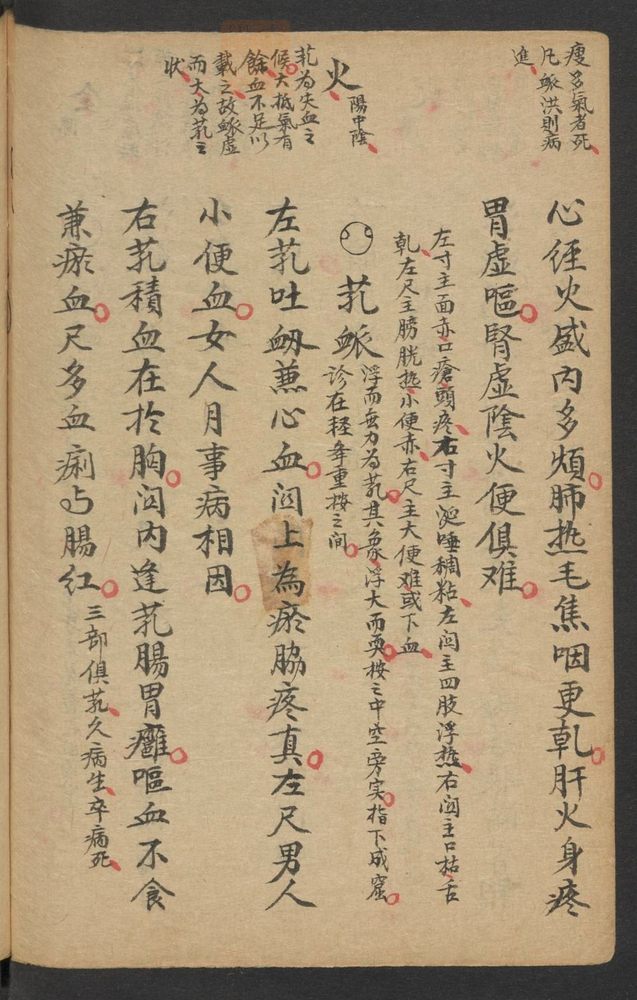 瘦多氣者死
凡脈洪則病
進
火
陽中陰
芤為失血之
候大抵氣有
餘血不足以
載之故脈虛
而大為芤之
狀
心經火盛內多煩肺热毛焦咽更乹肝火身疼
胃虛嘔腎虛陰火便俱难
左寸主面赤口瘡頭疼右寸主涎唾稠粘左関主四肢浮热右関主口枯舌
乹左尺主膀胱热小便赤右尺主大便难或下血
芤脈
浮而無力为芤其象浮大而耎按之中空旁实指下成窟
診在轻举重按之间
左芤吐衂兼心血関上為瘀脇疼真左尺男人
小便血女人月事病相因
右芤積血在於胸関内逢芤腸胃癰嘔血不食
兼瘀血尺多血痢与腸红
三部俱芤久病生卒病死